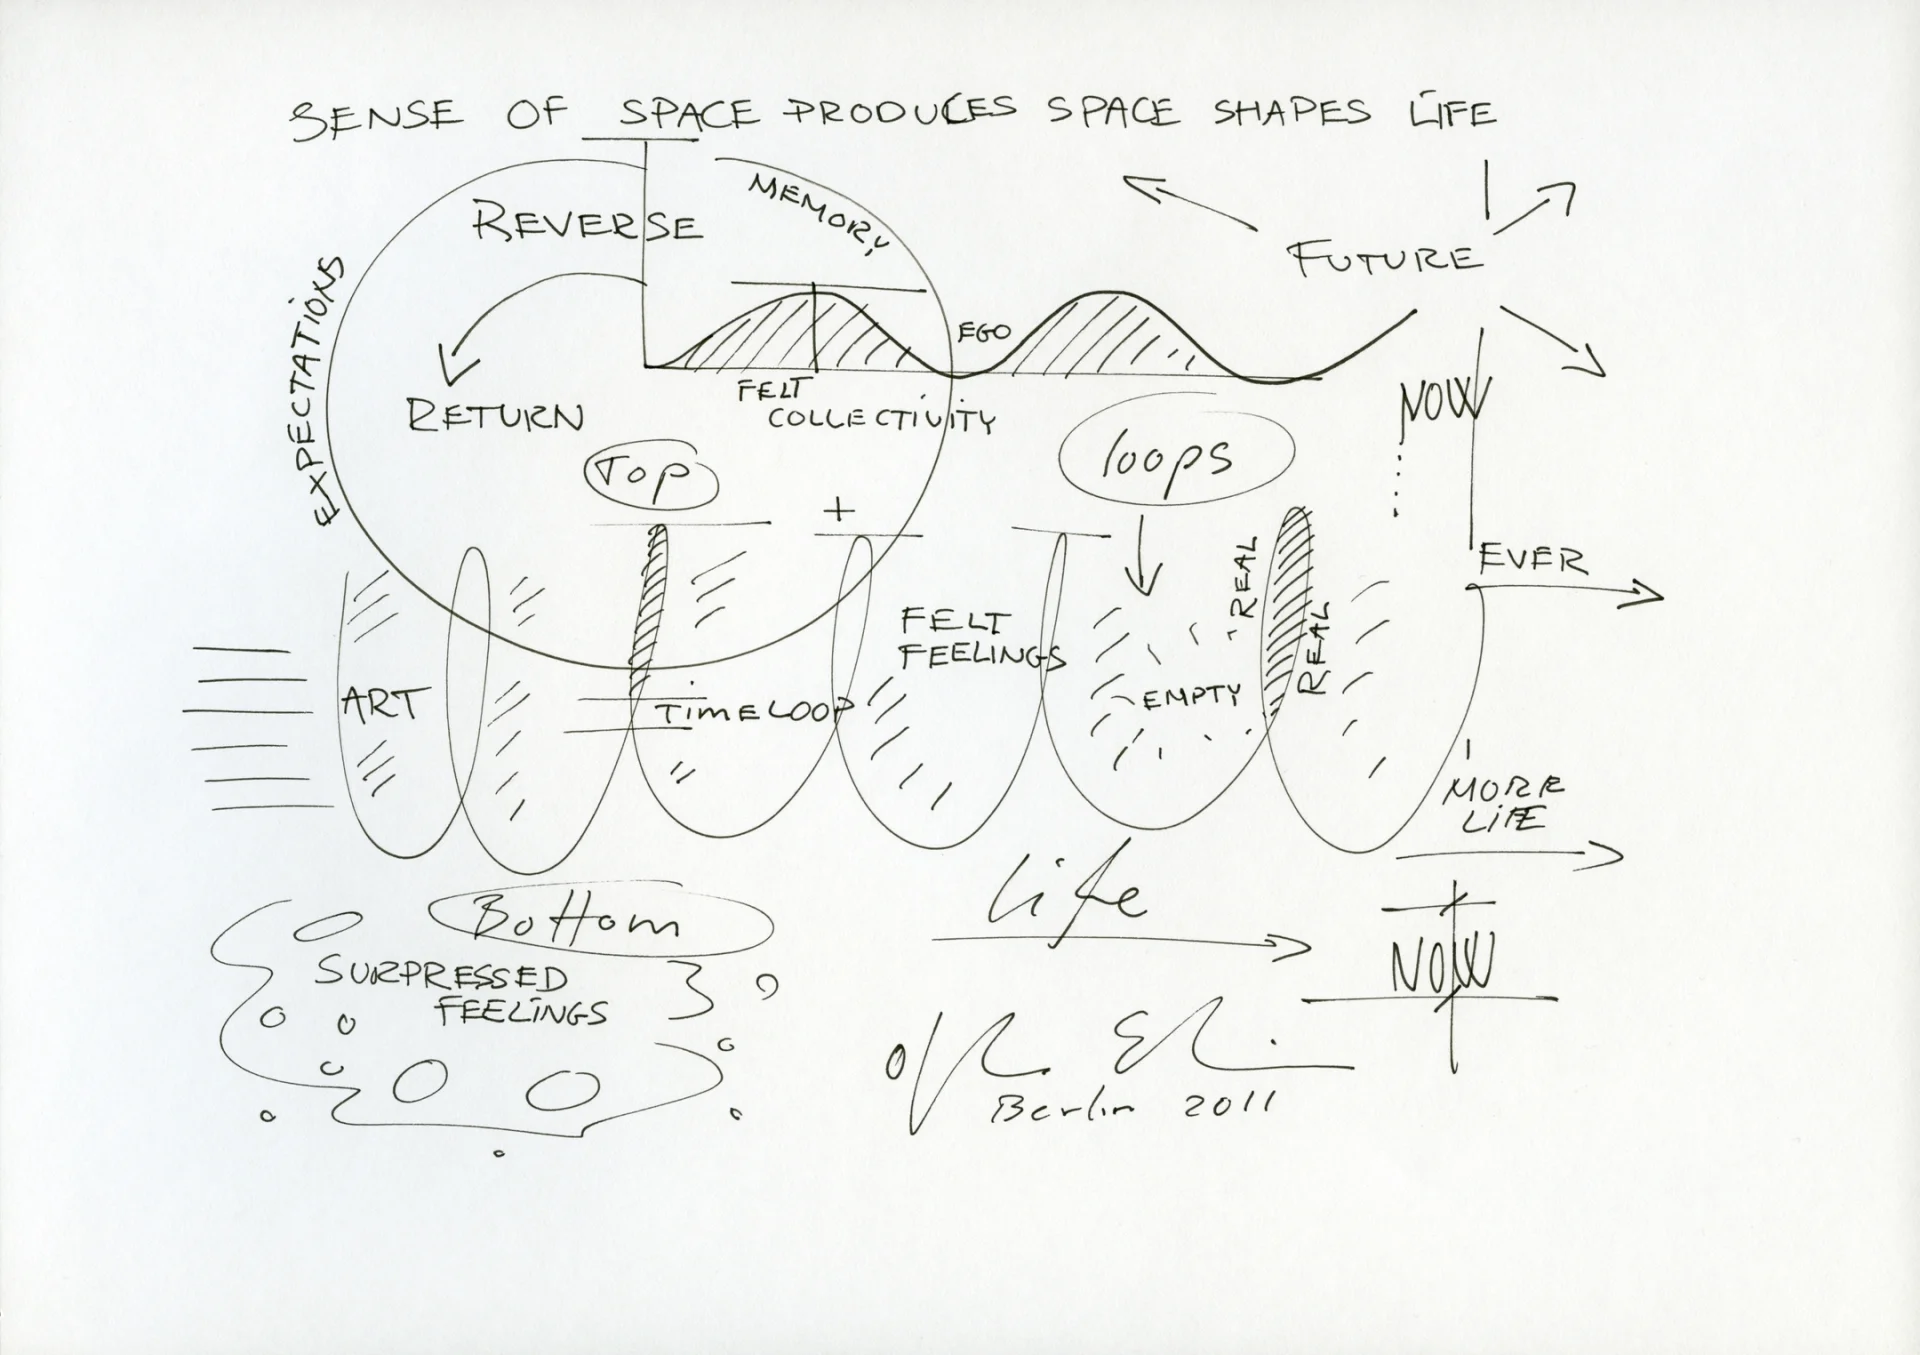 SENSE OF SPACE PRODUCES SPACE SHAPES LIFE
REVERSE
MEMORY
FUTURE
EXPECTATIONS
EGO
RETURN
FELT
COLLECTIVITY
NOW
TOP
loops
+
EVER
REAL
REAL
FELT
FEELINGS
ART
TIMELOOP
EMPTY
MORE
LIFE
Life
Bottom
NOW
SURPRESSED
FEELINGS
Berlin 2011